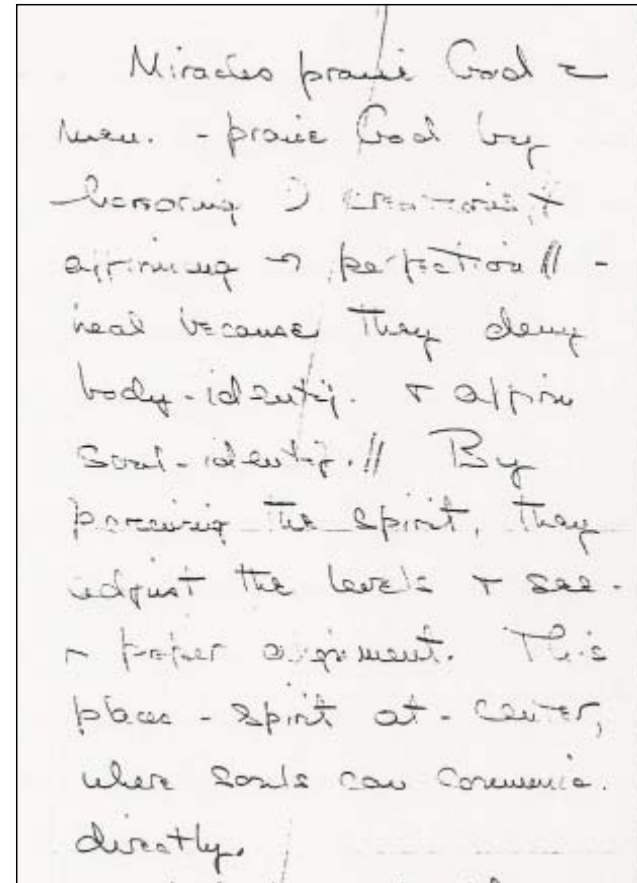 Miracles praise God
men. - praise God by
honoring creations, +
affirming perfection // -
heal because they deny
body-identif. + affirm
Soul-identif. // By
perceiving the Spirit, they
adjust the levels + see -
proper alignment. This
places - Spirit at - center,
where Souls can communic.
directly.